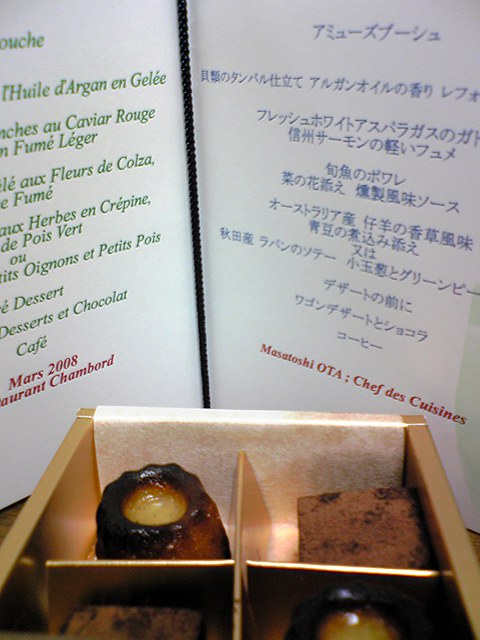 ouche
l'Huile d'Argan en Gelée
nches au Caviar Rouge
n Fumé Léger
lé aux Fleurs de Colza,
e Fumé
aux Herbes en Crépine,
de Pois Vert
ou
tits Oignons et Petits Pois
é Dessert
Desserts et Chocolat
Café
Mars 2008
aurant Chambord
アミューズブーシュ
貝類のタンバル仕立て アルガンオイルの香り レフォ
フレッシュホワイトアスパラガスのガト
信州サーモンの軽いフュメ
旬魚のポワレ
菜の花添え 燻製風味ソース
オーストラリア産 仔羊の香草風味
青豆の煮込み添え
又は
秋田産 ラパンのソテー 小玉葱とグリーンピー
デザートの前に
ワゴンデザートとショコラ
コーヒー
Masatoshi OTA ; Chef des Cuisines